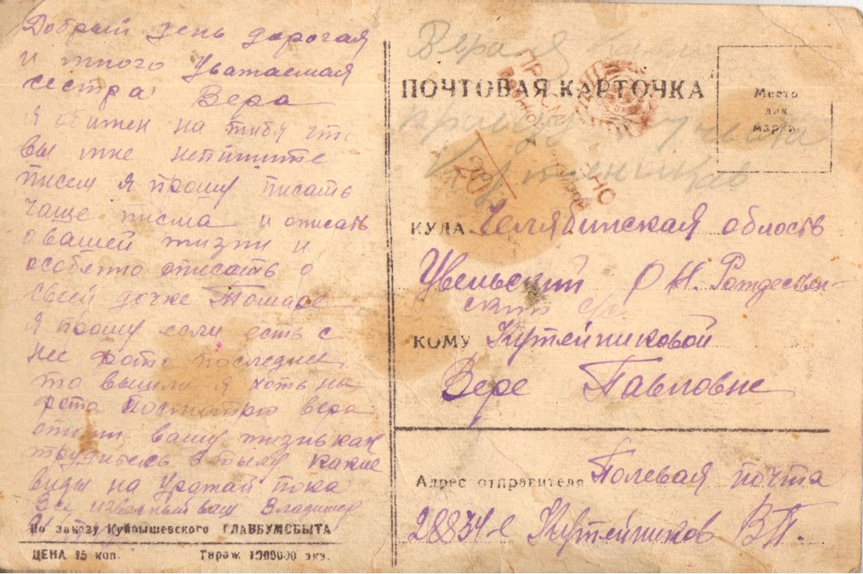 Добрый день дорогая
и много уважаемая
сестра Вера
Я обижен на тибя что
вы мне непишите
писем я прошу писать
чаще писма и описать
о вашей жизни и
особено описать о
своей дочке Томаре
Я прошу если есть с
нее фото последнее
то вышли я хоть на
фото посмотрю вера
опиши вашу жизнь как
трудитесь в тылу какие
виды на Урожай пока
Владимир
По заказу Куйбышевского ГЛАВБУМСБЫТА
ЦЕНА 15 коп. Тираж 1000000 экз.
Вера
ПОЧТОВАЯ КАРТОЧКА
Место
для
марки
КУДА Челябинская область
Увельский РН. Рождествен-
ский с/с.
КОМУ Кутейниковой
Вере Павловне
Адрес отправителя Полевая почта
28834-е Кутейников В.П.